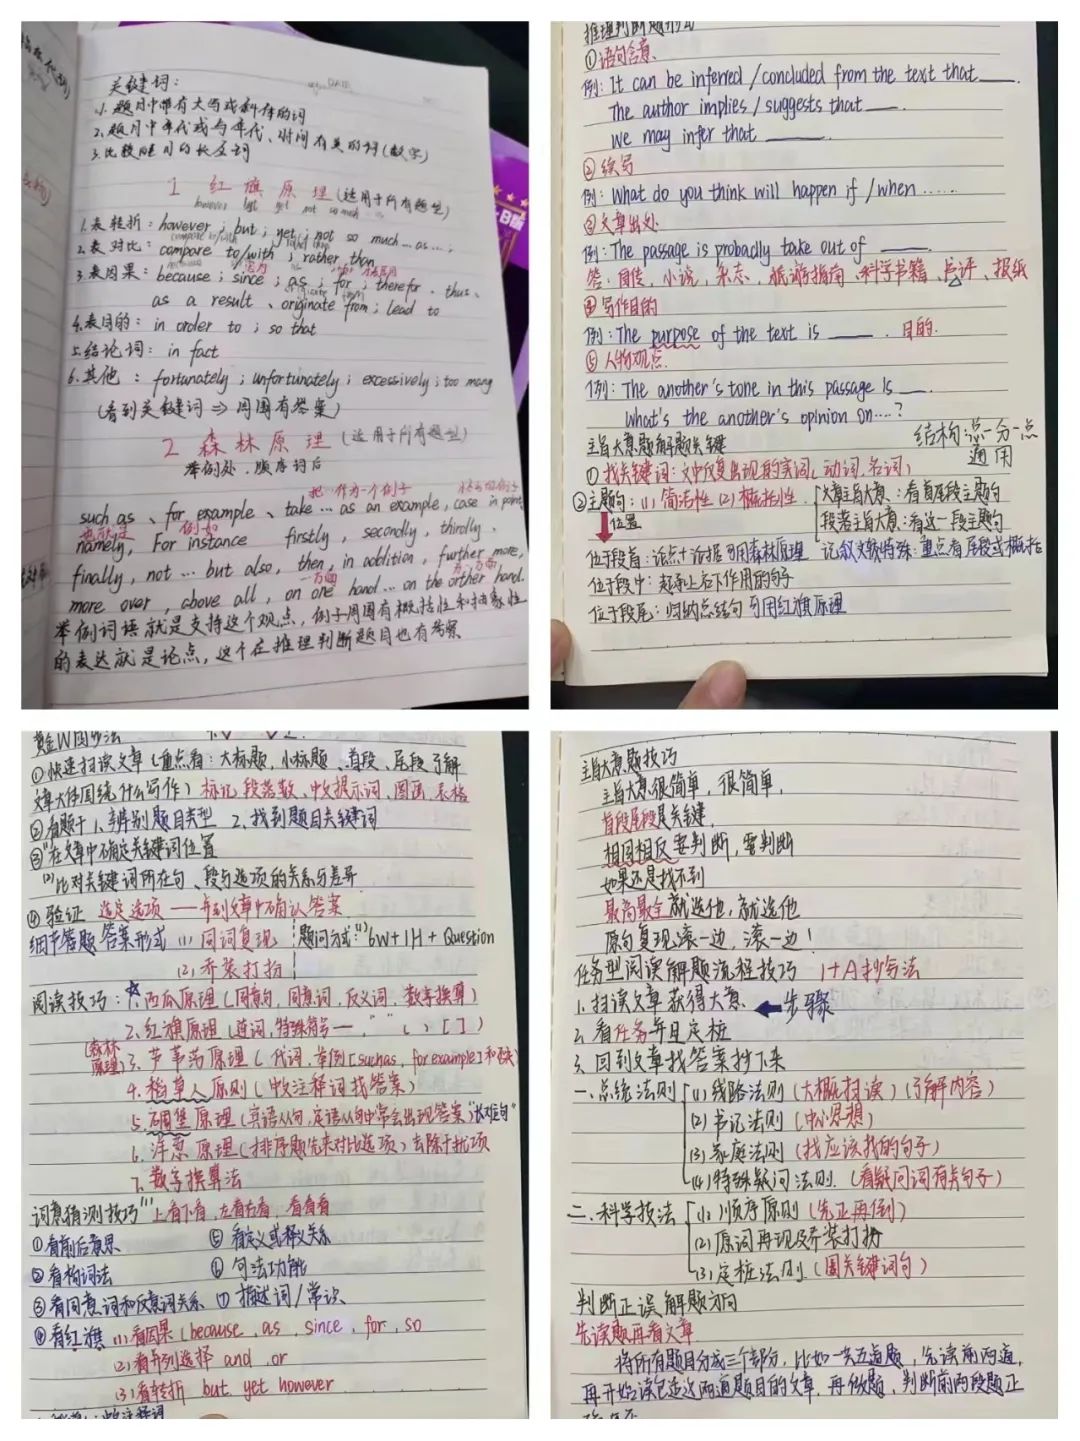 关键词：
1.题目中带有大写或斜体的词
2.题目中年代或与年代、时间有关的词(数字)
3.比较醒目的长难词
1 红旗原理(适用于所有题型)
however but yet not so much
1.表转折：however；but；yet；not so much...as...；
2.表对比：compare to/with；rather than
3.表因果：because；since；as；for；therefor、thus、
as a result、originate from；lead to
4.表目的：in order to；so that
5.结论词：in fact
6.其他：fortunately；unfortunately；excessively；too many
(看到关键词⇒周围有答案)
2 森林原理(适用于所有题型)
举例处、顺序词后
把 作为一个例子
such as、for example、take...as an example, case in point,
也就是 例如
namely, For instance firstly, secondly, thirdly、
finally, not...but also, then, in addition, further more,
一方面 另一方面
more over, above all, on one hand...on the orther hand.
举例词语就是支持这个观点，例子周围有概括性和抽象性
的表达就是论点，这个在推理判断题目也有考察
推理判断题形式
①语句含意
例：It can be inferred/concluded from the text that____.
The author implies/suggests that____.
we may infer that ______.
②续写
例：What do you think will happen if/when......
③文章出处
例：The passage is probadly take out of ____.
答：自传、小说、杂志、旅游指南、科学书籍、书评、报纸
④写作目的
例：The purpose of the text is ____. 目的.
⑤人物观点
例：The another's tone in this passage is __.
What's the another's opinion on....?
主旨大意题解题关键
结构：总一分一总
通用
①找关键词：文中反复出现的实词(动词、名词)
②主题句：(1)简洁性 (2)概括性
文章主旨大意：看首尾段主题句
位置
段落主旨大意：看这一段主题句
位于段首：论点+论据 可用森林原理
记叙文较特殊：重点看尾段或概括
位于段中：起承上启下作用的句子
位于段尾：归纳总结句 可用红旗原理
黄金W同步法
①快速扫读文章(重点看：大标题，小标题、首段、尾段了解
文章大体围绕什么写作)标记段落数、中文提示词、图画、表格
②看题干 1.辨别题目类型 2.找到题目关键词
③(1)在文章中确定关键词位置
(2)比对关键词所在句、段与选项的关系与差异
④验证 选定选项——再到文章中确认答案
细节答题 答案形式 (1)同词复现 题问方式：(1)6W+1H+Question
(2)乔装打扮
阅读技巧：☆1.西瓜原理(同意句，同意词，反义词，数字换算)
2.红旗原理(连词，特殊符号一，" "( )[ ])
(森林原理)3.芦苇荡原理(代词、举例[suchas, for example]和
4.稻草人原则(中文注释词找答案)
5.碉堡原理(宾语从句，定语从句中常会出现答案)"长难句"
6.洋葱原理(排序题先来对比选项)去除干扰项
7.数字换算法
词意猜测技巧"上看下看，左看右看，看看看
①看前后意思 ⑤看定义或释义关系
②看构词法 ⑥句法功能
③看同意词和反意词关系 ⑦描述词/常识
④看红旗 (1)看因果(because、as、since、for、so
(2)看并列选择 and、or
(3)看转折 but、yet、however
主旨大意题技巧
主旨大意很简单，很简单，
首段尾段是关键，
相同相反要判断，要判断
如果还是找不到
最高最全就选他，就选他
原句复现滚一边，滚一边！
任务型阅读解题流程技巧 1+A抄写法
1.扫读文章获得大意 步骤
2.看任务并且定桩
3.回到文章找答案抄下来
一.总统法则 (1)线路法则(大概扫读)(了解内容)
(2)书记法则(中心思想)
(3)家庭法则(找应该找的句子)
(4)特殊疑问法则(看疑问词有关句子)
二.科学技法 (1)顺序原则(先正再倒)
(2)原词再现及乔装打扮
(3)定桩法则(圈关键词句)
判断正误解题方向
先读题再看文章
将所有题目分成三个部分，比如一共五道题，先读前两道，
再开始读包含这两道题目的文章，再做题，判断前两段题正